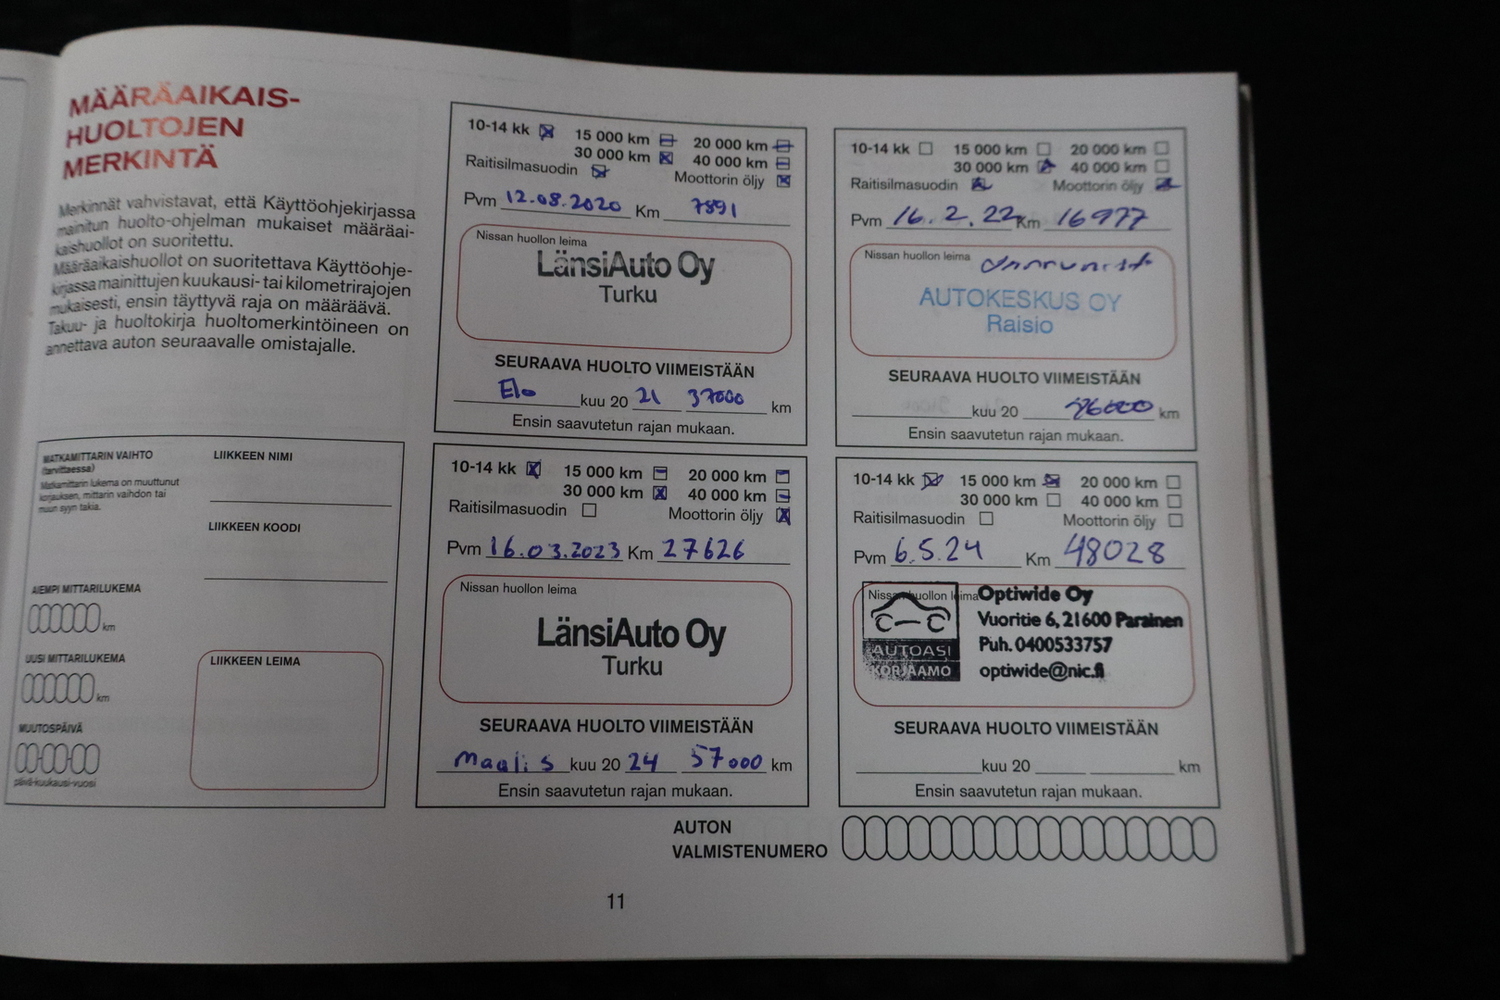 MÄÄRÄAIKAIS-
HUOLTOJEN
MERKINTÄ
Merkinnät vahvistavat, että Käyttöohjekirjassa
mainitun huolto-ohjelman mukaiset määräai-
kaishuollot on suoritettu.
Määräaikaishuollot on suoritettava Käyttöohje-
kirjassa mainittujen kuukausi- tai kilometrirajojen
mukaisesti, ensin täyttyvä raja on määräävä.
Takuu- ja huoltokirja huoltomerkintöineen on
annettava auton seuraavalle omistajalle.
MATKAMITTARIN VAIHTO
(tarvittaessa)
Matkamittarin lukema on muuttunut
korjauksen, mittarin vaihdon tai
muun syyn takia.
LIIKKEEN NIMI
LIIKKEEN KOODI
AIEMPI MITTARILUKEMA
km
UUSI MITTARILUKEMA
km
MUUTOSPÄIVÄ
päivä-kuukausi-vuosi
LIIKKEEN LEIMA
10-14 kk 15 000 km 20 000 km
30 000 km 40 000 km
Raitisilmasuodin Moottorin öljy
Pvm 12.08.2020 Km 7891
Nissan huollon leima
LänsiAuto Oy
Turku
SEURAAVA HUOLTO VIIMEISTÄÄN
Elo kuu 20 21 37000 km
Ensin saavutetun rajan mukaan.
10-14 kk 15 000 km 20 000 km
30 000 km 40 000 km
Raitisilmasuodin Moottorin öljy
Pvm 16.2.22 Km 16977
Nissan huollon leima
AUTOKESKUS OY
Raisio
SEURAAVA HUOLTO VIIMEISTÄÄN
kuu 20 km
Ensin saavutetun rajan mukaan.
10-14 kk 15 000 km 20 000 km
30 000 km 40 000 km
Raitisilmasuodin Moottorin öljy
Pvm 16.03.2023 Km 27626
Nissan huollon leima
LänsiAuto Oy
Turku
SEURAAVA HUOLTO VIIMEISTÄÄN
Maalis kuu 20 24 57000 km
Ensin saavutetun rajan mukaan.
10-14 kk 15 000 km 20 000 km
30 000 km 40 000 km
Raitisilmasuodin Moottorin öljy
Pvm 6.5.24 Km 48028
Nissan huollon leima
AUTOASI
KORJAAMO
Optiwide Oy
Vuoritie 6, 21600 Parainen
Puh. 0400533757
optiwide@nic.fi
SEURAAVA HUOLTO VIIMEISTÄÄN
kuu 20 km
Ensin saavutetun rajan mukaan.
AUTON
VALMISTENUMERO
11